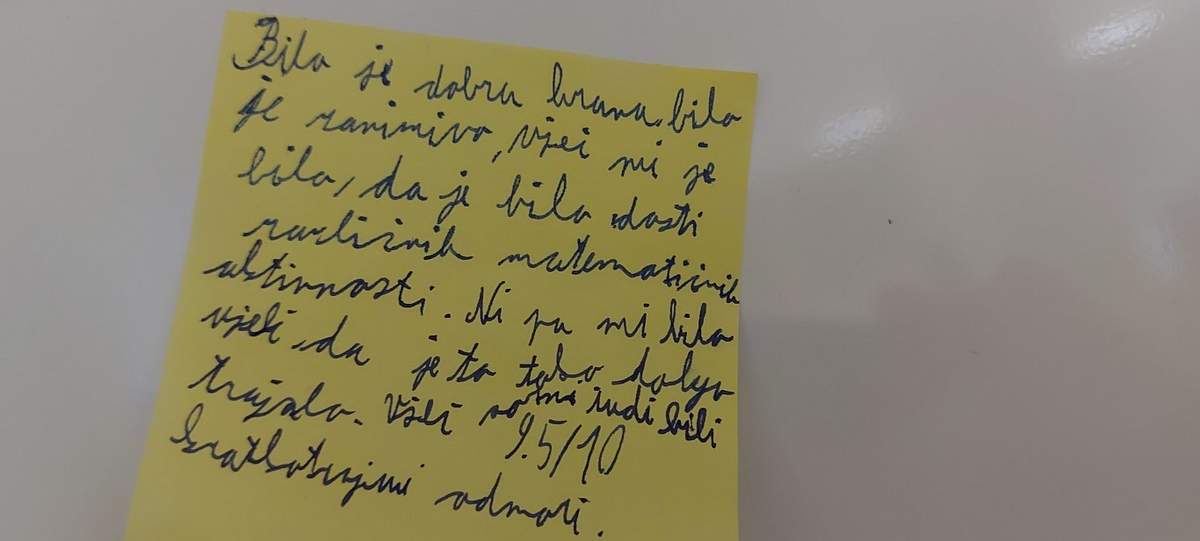 Bila je dobra hrana, bilo
je zanimivo, všeč mi je
bilo, da je bilo dosti
različnih matematičnih
aktivnosti. Ni pa mi bilo
všeč, da je to tako dolgo
trajalo. Všeč so mi tudi bili
9.5/10
kratkotrajni odmori.